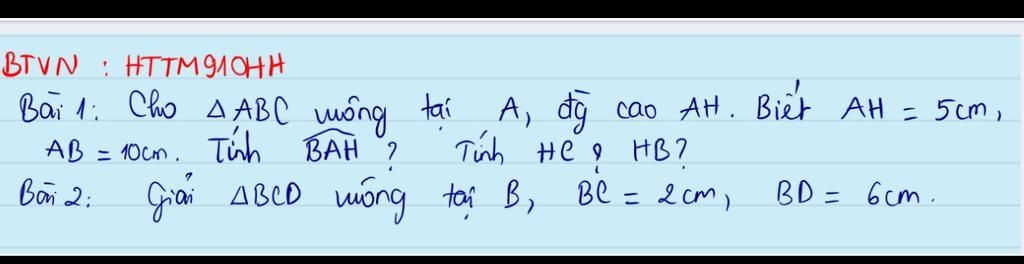 BTVN : HTTM910HH
Bài 1: Cho △ABC vuông tại A, đg̀ cao AH. Biết AH = 5cm,
AB = 10cm. Tính B̂AH ? Tính HC, HB?
Bài 2: Giải △BCD vuông tại B, BC = 2cm, BD = 6cm.